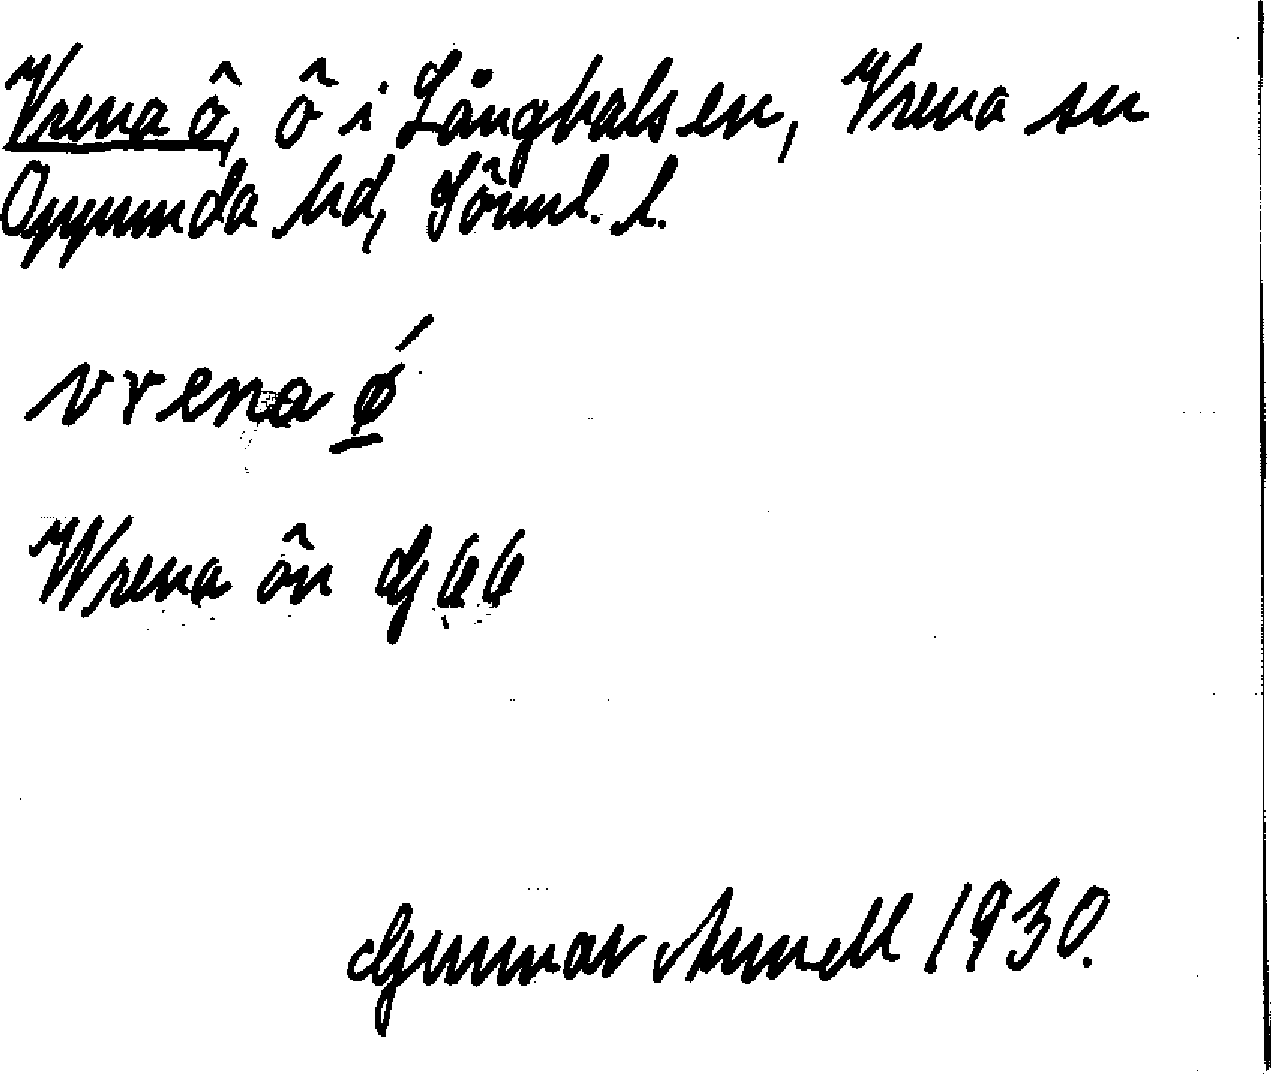 Vrena ö, ö i Långhalsen, Vrena sn
Oppunda hd, Söuml. l.
vrena ǿ
Wrena ön G 66
Gunnar Arnell 1930.